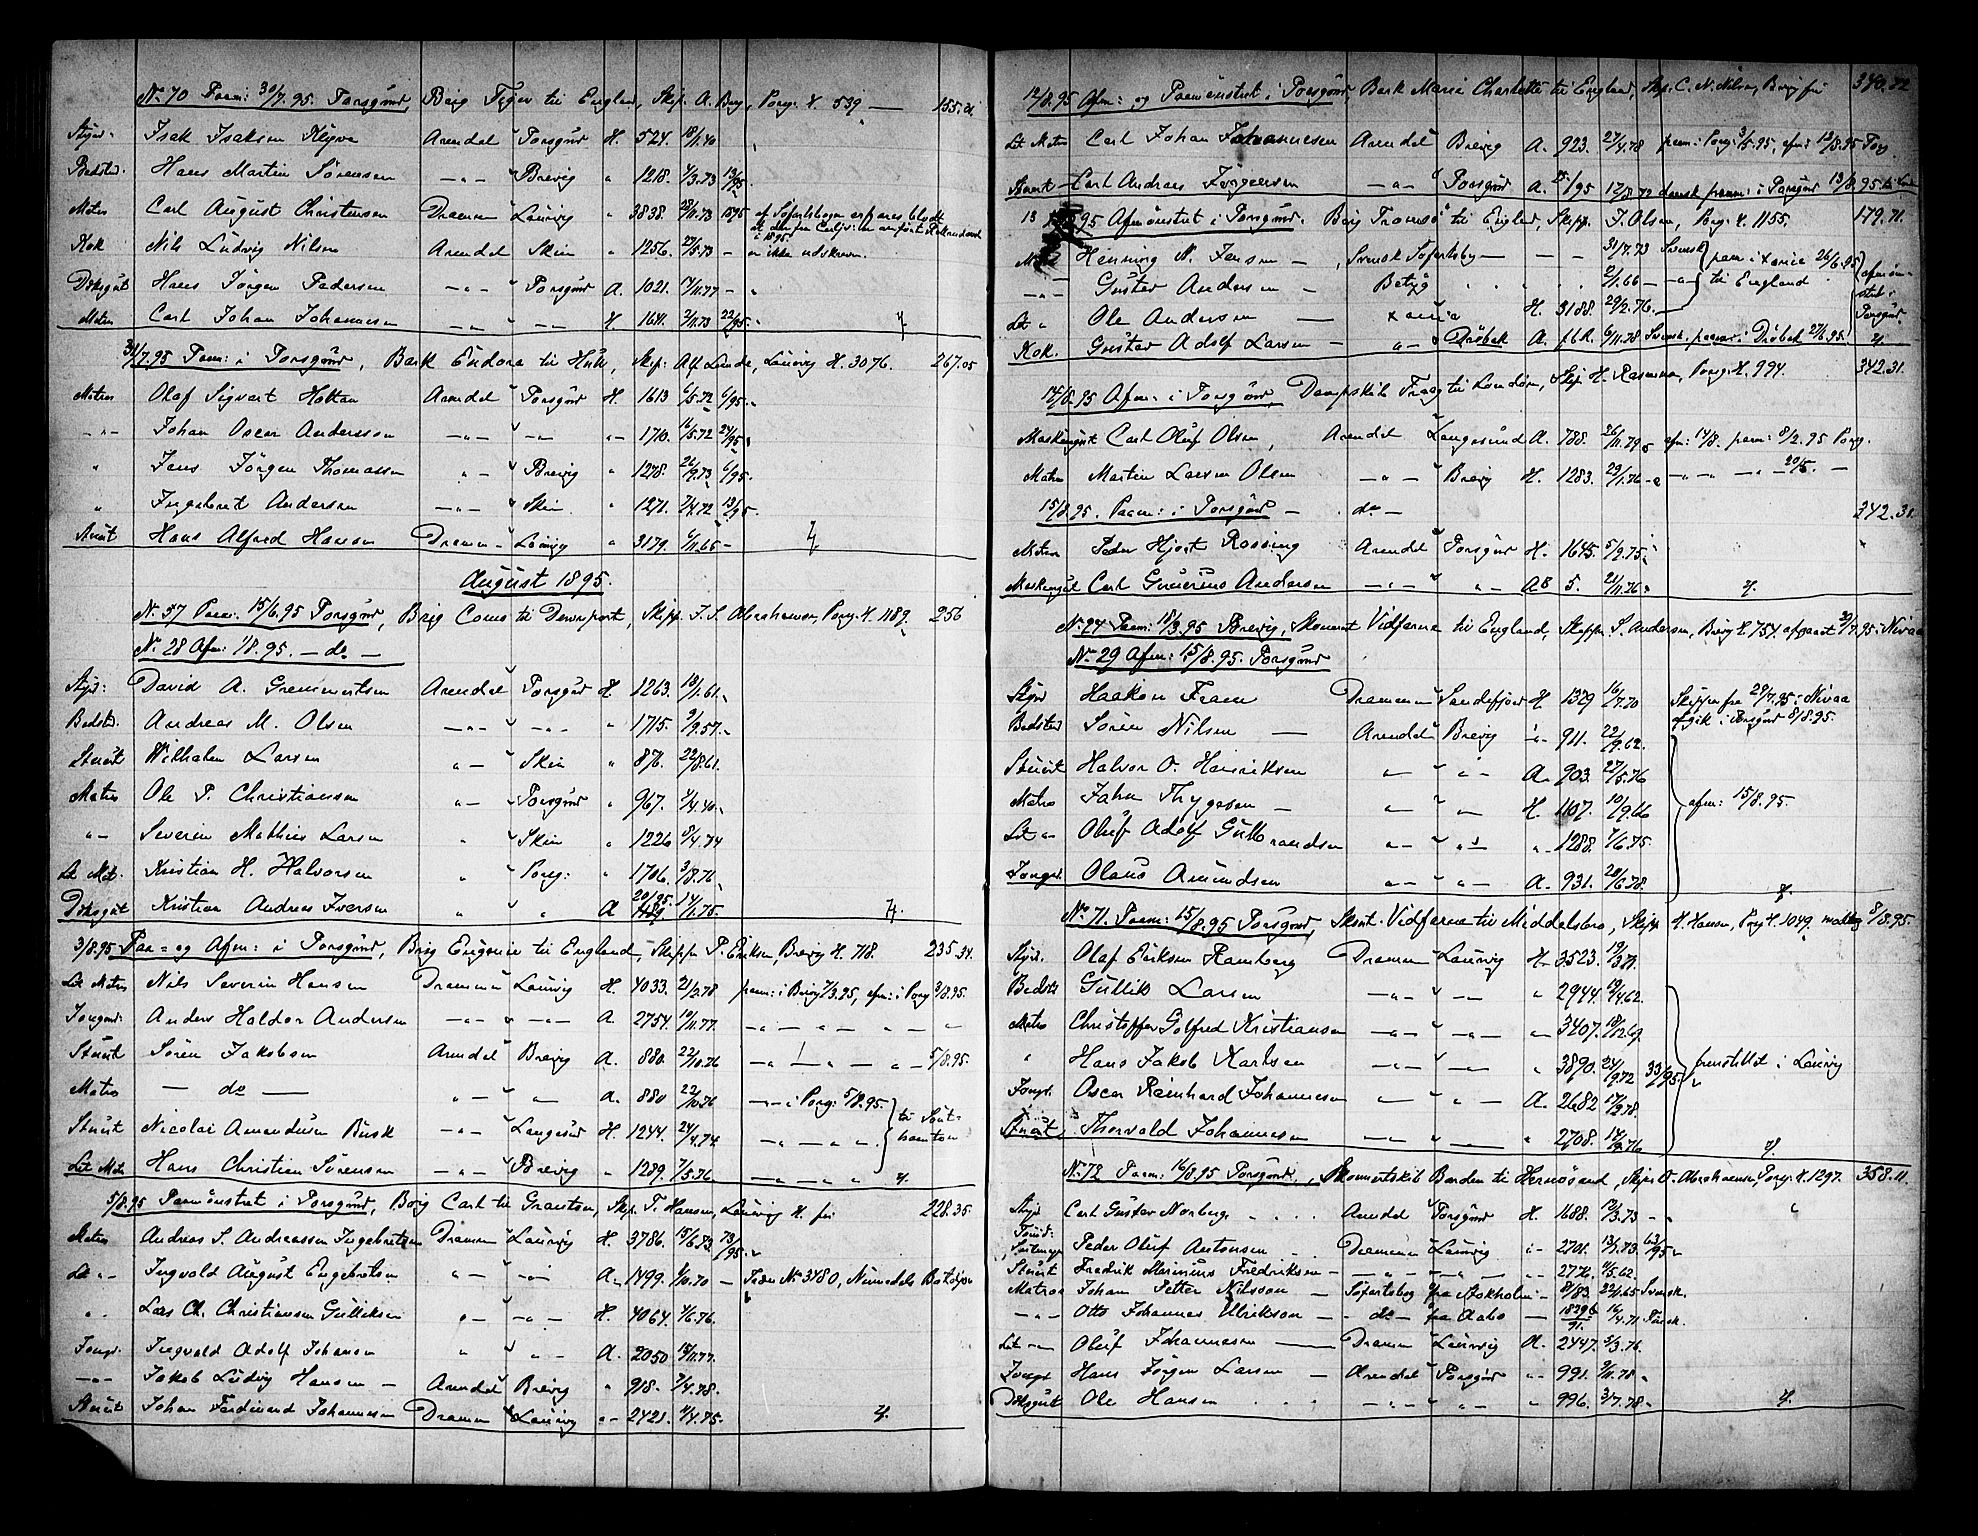 No 70 Paam: 30/7.95 Porsgrund, Brig Tiger til England, Skip. A. Berg, Porsg. H. 539 — 155.
Styrm: Isak Isaksen Klyve Arendal " Porsgrund H. 524. 18/11.40
Bedstm. Hans Martin Sörensen —„— " Brevig „ 1218. 1/3.73 13/95.
Matros Carl August Christensen Drammen " Laurvig „ 3838. 28/11.73 95
Kok Nils Ludvig Nilsen Arendal Skien „ 1256. 27/5.73 — er ikke udskreven.
Dæksgut Hans Jörgen Pedersen —„— " Porsgrund A. 1021. 17/11.77 — „
Matros Carl Johan Johannesen —„— " —„— H 1641. 2/11.73 22/95. „
31/7.95 Paam: i Porsgrund, Bark Eudora til Hull, Skip: Alf Lunde, Laurvig H. 3076. 267.05
Matros Olaf Sigvart Holtan Arendal " Porsgrund H. 1613 6/5.72 6/95. „
—„— Johan Oscar Andersson —„— " —„— „— 1710. 16/5.72 24/95 „
„ Jens Jörgen Thomassen „ — " Brevig „ 1278. 26/9.73 6/95.
„ Ingebret Andersen —„— " Skien „ 1271. 7/4.72 13/95 —
Stuert Hans Alfred Hansen Drammen — " Laurvig „ 3179. 6/11.65 —
August 1895.
No 57 Paam: 15/6.95 Porsgrund, Brig Coms til Devenport, Skipp. J. S. Abrahamsen, Porsg. H. 1189. 256
No 28 Afm: 1/8.95. — do —
Styrm: David A. Gremmertsen Arendal " Porsgrund H. 1263. 18/1.61.
Bedstm. Andreas M. Olsen —„— " —„— „ 1715. 9/9.57.
Stuert Wilhalm Larsen „ — " Skien „ 876. 22/8.61.
Matros Ole P. Christiansen „ — " Porsgrund „ 967. 1/4.40.
„— Severin Mathias Larsen „ " Skien „ 1226 5/4.74
Let Mat. Kristian H. Halvorsen „ " Porsg: „ 1706. 3/8.76
Dæksgut Kristian Andreas Iversen „ „ A 20/95. 14/1.78.
3/8.95 Paa= og Afm: i Porsgrund, Brig Eugenie til England, Skipp. P. Eriksen, Brevig H. 718. 235.34.
Let Matros Nils Severin Hansen Drammen " Laurvig H. 4033. 21/3.78 paam: i Brevig 7/3.95, afm: i Porsg 3/8.95.
Jungm: Anders Haldor Andersen —„— " —„— A. 2754. 10/11.77. —„— „ — „ — „ —
Stuert Sören Jakobsen Arendal " Brevig A. 880. 22/10.76 —„— „ — „ — „ — 5/8.95.
Matros — do — „ — " „— A. 880 22/10.76 —„— i Porsg: 5/8.95.
Stuert Nicolai Amandusen Busk —„— " Langesund H. 1244. 24/4.74 —„— „ — „. til Sout-
hamton
Let Mat. Hans Christian Sörensen —„— " Brevig „ 1289. 7/5.76 —„— „ „
5/8.95 Paamönstret i Porsgrund, Brig Carl til Granton, Skip. T. Hansen, Laurvig H. 228.35.
Matros Andreas S. Andreassen Ingebretsen Drammen " Laurvig H. 3786. 15/6.53. 73/95. „
Let „— Ingvald August Engebretsen „ — " —„— A. 1499. 1/10.70 — Fæder No 3480, Numedals
„. Lars Ch. Christiansen Gulliksen „— " —„— H. 4064. 4/6.76.
Jungm. Ingvald Adolf Johansen „ " „— A. 2050 15/11.77.
—„— Jakob Ludvig Hansen — Arendal " Brevig „ 918. 7/4.78.
Stuert Johan Ferdinand Johannesen Drammen " Laurvig „— 2421. 4/4.75.
12/8.95 Afm: og Paamönstret i Porsgrund, Bark Maria Charlotte til England, Skp. C. N. Nilsen, Brevig 340.72
Let Matros Carl Johan Johannesen Arendal " Brevig A. 923. 27/4.78 paam: i Porsg. 3/5.95, afm: 12/8.95 Porsg.
Stuert — Carl Andreas Jörgensen —„— " Porsgrund A. 25/95 17/8.72 dansk, paam: i Porsgrund 13/8.95.
13 95 Afmönstret i Porsgrund. Brig Tromsö til England, Skipp. J. Olsen, Porsg. H. 1155. 179.71.
Henning N. Jensen — Svensk Söfartsbog — — — 31/7.73 Svensk paam: i Xania 26/6.95
—„— Gustav Andersen — Betyg 2/1.66 — „— til England
afmön-
stret i
Porsgrund.
Let „ Ole Andersen — Xania H. 3188. 29/2.76. —
Kok. Gustav Adolf Larsen — „— " Dröbak A. 6/11.78 Svensk, paam: i Dröbak 27/6.95.
14/8.95 Afm: i Porsgrund, Dampskib Fragg til London, Skip H. Rasmussen, Porsg: H. 994. 342.31.
Maskingut Carl Oluf Olsen, Arendal " Langesund A. 788. 26/11.79. afm: 14/8. paam: 8/2.95 Porsg.
Matros Martin Larsen Olsen —„— " Brevig H. 1283. 29/1.76 — —„— „ — „ — 20/5. —
15/8.95. Paam: i Porsgrund — — do — 342.31.
Matros Peder Hjort Rossing Arendal " Porsgrund H. 1645. 5/9.75.
Maskingut Carl Gunerius Andersen —„— " „— AB 5. 21/11.76.
No 24 Paam: 18/3.95 Brevig, Skonnert Vidfarne til England, Skipper S. Andersen, Brevig H. 754, afgaaet 29/7.95 i Nivaa
No 29 Afm: 15/8.95. Porsgrund
Styrm Haakon Fram Drammen " Sandefjord H. 1379 16/7.70 Skipper fra 29/7.95 i Nivaa
afgik i Porsgrund 8/8.95.
Bedstm Sören Nilsen — Arendal Brevig „— 911. 22/9.62.
Stuert Halvor O. Henriksen „— " „ — A. 903. 27/5.76
Matros Jahn Thygesen — „— " „— H. 1107. 10/9.66 afm: 15/8.95.
Let „— Oluf Adolf Gulbrandsen „— " „— „— 1288. 7/6.75.
Jungm. Olaus Amundsen „— " „— A. 931. 20/6.78.
No 71. Paam: 15/8.95 Porsgrund, Sknt. Vidfarne til Middelsbro, Skip H. Hansen, Porsg H. 1049. modtog 8/8.95.
Styrm. Olaf Eriksen Ramberg Drammen " Laurvig H. 3523. 19/3.71.
Bedstm Gullik Larsen —„— " —„— „ 2944. 19/4.62.
Matros Christoffer Golfred Kristiansen —„— " —„— „— 3407. 18/12.69.
„ Hans Jakob Karlsen „— " „— „ 3890. 24/9.72 33/95. fremstillet i Laurvig
Jungm. Oscar Reinhard Johannesen „— " „— A. 2682 17/9.78.
Stuert Thorvald Johannesen —„— " „— „ 2708. 14/9.76
No 72 Paam: 16/8.95 Porsgrund, Skonnertskib Barden til Hernösand, Skip. O. Abrahamsen, Porsg. H. 1297. 358.11.
Styrm Carl Gustav Norberg . . Arendal " Porsgrund H. 1688. 19/3.73 — „
Peder Oluf Antonsen . . Drammen " Laurvig „— 2701. 13/1.73. 63/95 „
Stuert Fredrik Marinius Fredriksen — „— „— „ — 2776. 4/5.62.
Matros Johan Petter Nilsson — Söfartsbog fra Stokholm — 81/83. 22/1.65 Svensk.
—„— Otto Johannes Ulrikson — — do — fra Aabo — 1829/91. 16/4.71 Finsk.
Let —„— Oluf Johannesen — Drammen " Laurvig A. 2447. 5/3.76.
Jungm Hans Jörgen Larsen — Arendal " Porsgrund „— 991. 9/11.78 „
Dæksgut Ole Hansen . . —„— " „— „ 996. 3/7.78.